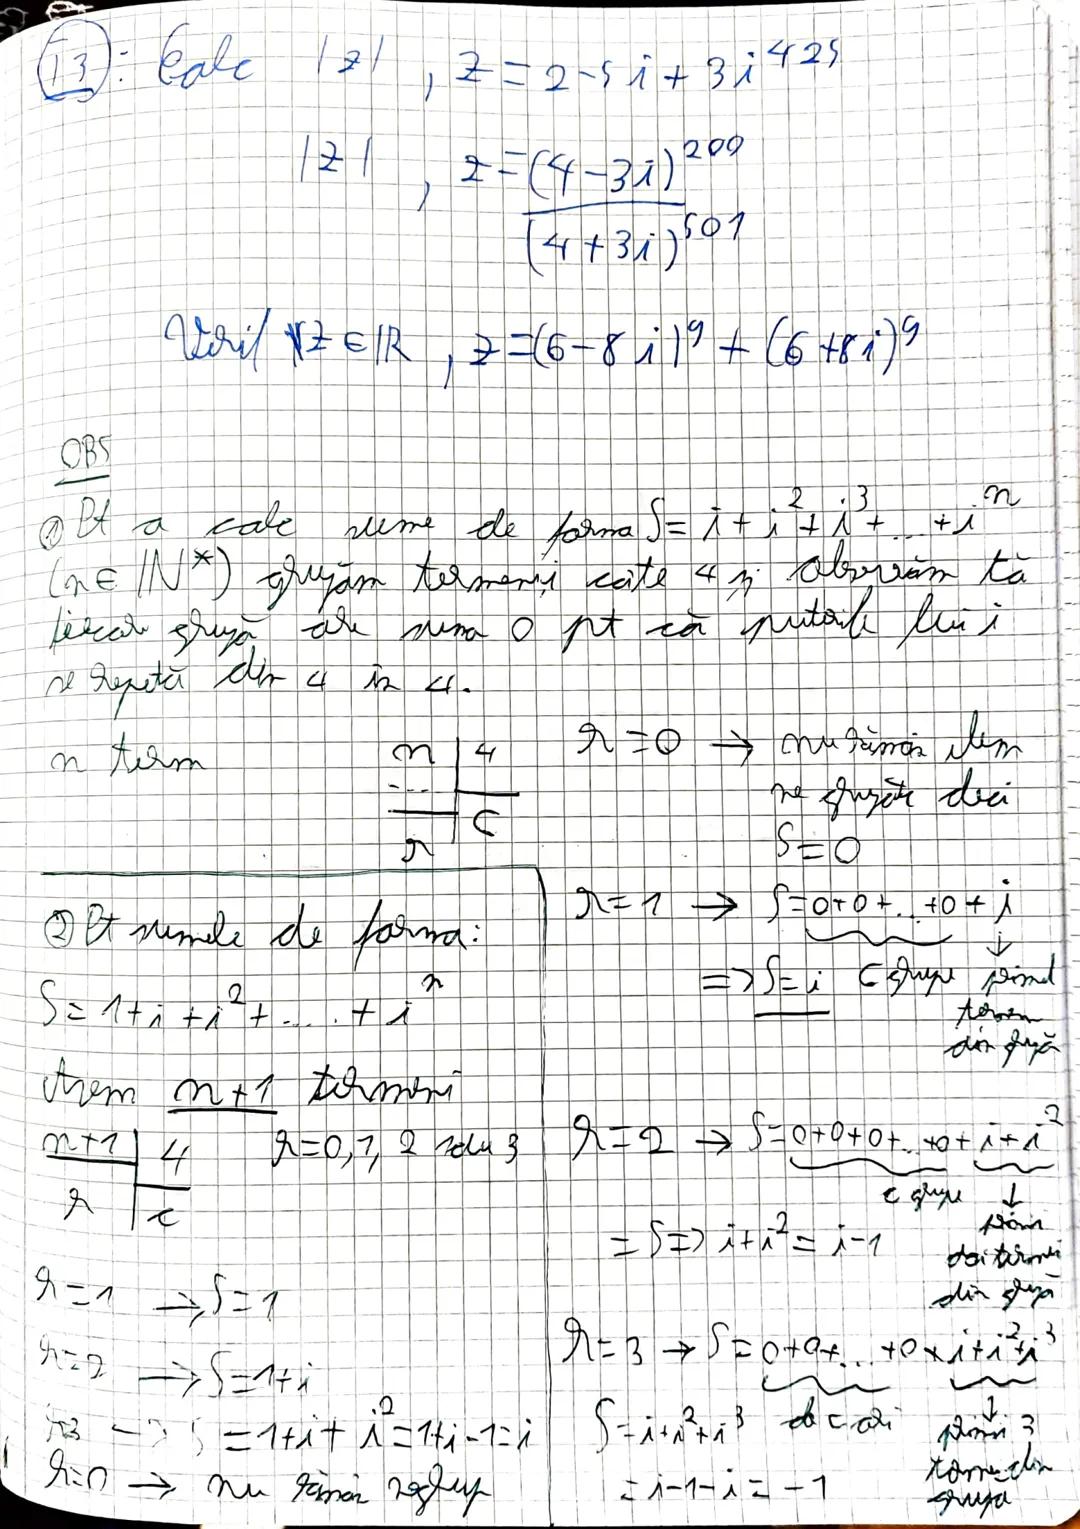 T3: Calc |z| , z = 2-5i + 3i^425
|z| , z = (4-3i)^200 / (4+3i)^501
Verif z ∈ ℝ , z = (6-8i)^9 + (6+8i)^9
OBS
① Pt a calc sume de forma S = i + i^2 + i^3 + ... + i^n
(n ∈ ℕ*) grupăm termenii câte 4 și observăm că
fiecare grupă are suma 0 pt că puterile lui i
se repetă din 4 în 4.
n term
n | 4
... 
r | c
r = 0 → nu rămân
ne grupate deci
S = 0
r = 1 → S = 0+0+...+0+i
=> S = i c grupe primul
termen
din grupă
r = 2 → S = 0+0+0+...+0+i+i^2
c grupe
= S => i+i^2 = i-1
primii
doi termeni
din grupă
r = 3 → S = 0+0+...+0+i+i^2+i^3
S = i+i^2+i^3 de c ori
= i-1-i = -1
primii 3
termeni din
grupa
② Pt sumele de forma:
S = 1+i+i^2+...+i^n
Avem n+1 termeni
n+1 | 4 r=0,1,2 sau 3
r | c
r=1 → S=1
r=2 → S=1+i
r=3 → S=1+i+i^2=1+i-1=i
r=0 → nu rămân